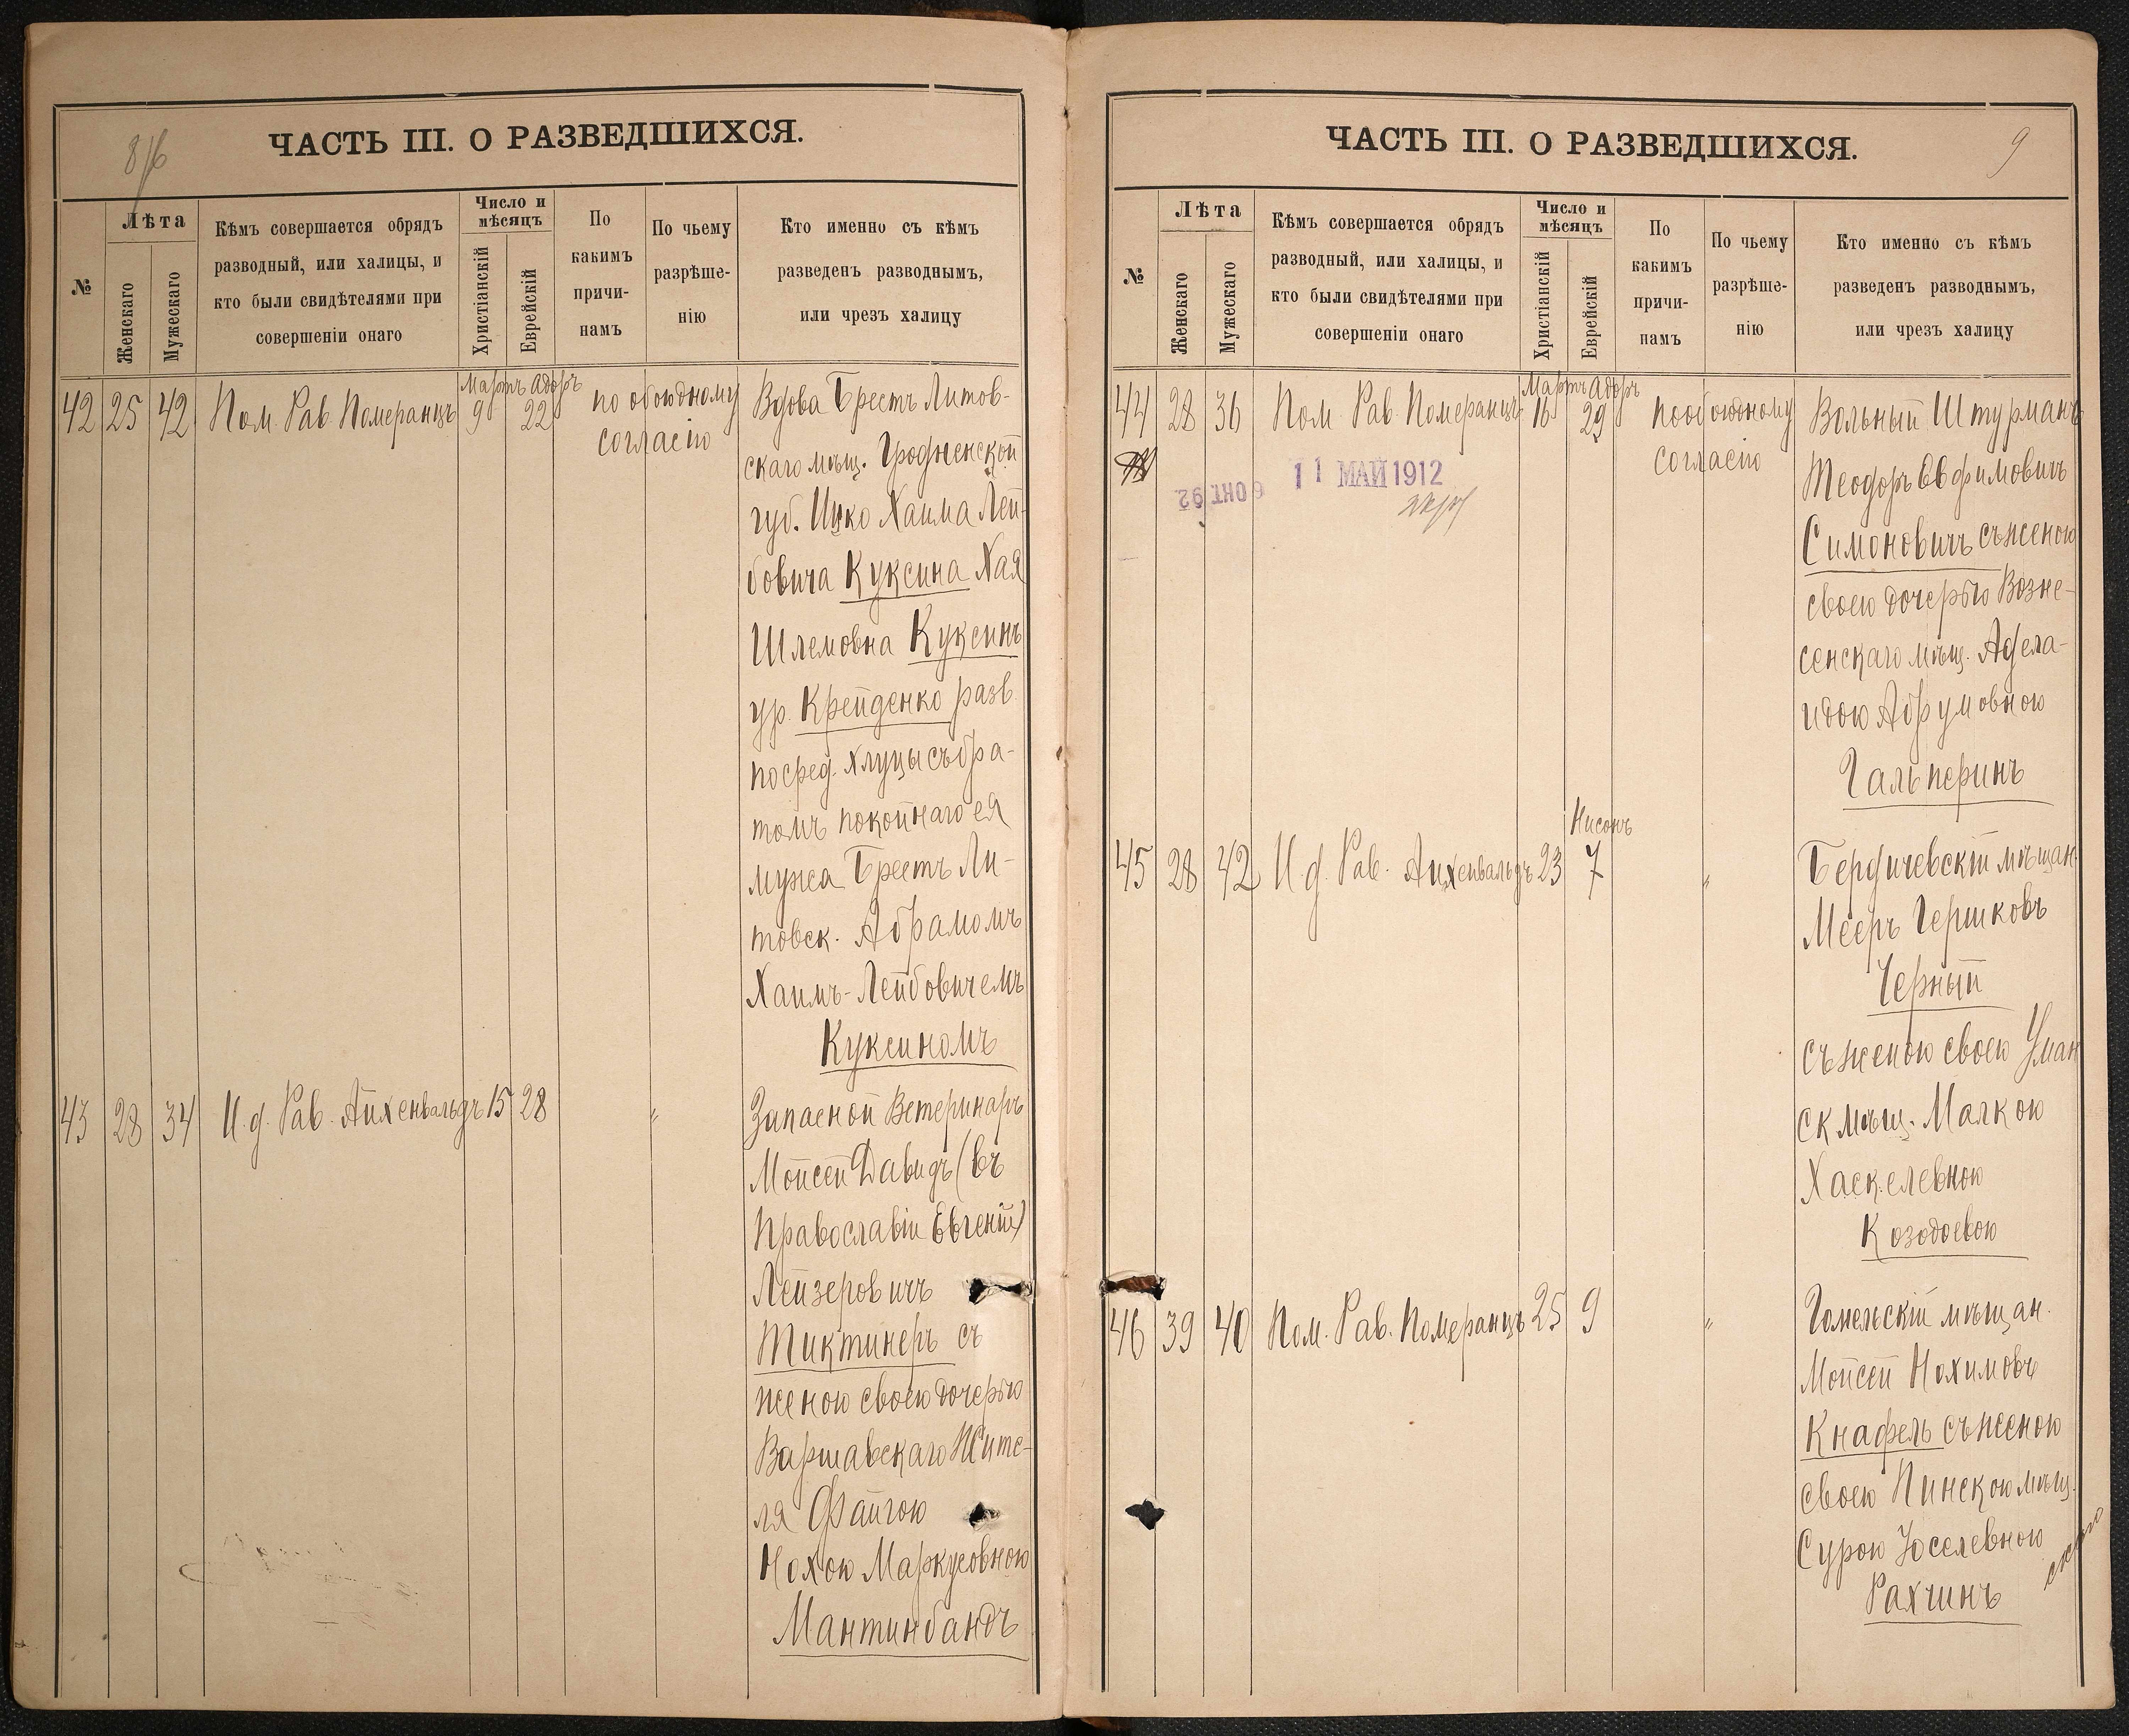 8/6
ЧАСТЬ III. О РАЗВЕДШИХСЯ.
№
Лѣта
Женскаго
Мужескаго
Кѣмъ совершается обрядъ
разводный, или халицы, и
кто были свидѣтелями при
совершеніи онаго
Число и
мѣсяцъ
Христіанскій
Еврейскій
По
какимъ
причи-
намъ
По чьему
разрѣше-
нію
Кто именно съ кѣмъ
разведенъ разводнымъ,
или чрезъ халицу
Мартъ Адоръ
42 25 42 Пом. Рав. Померанцъ 9 22 по обоюдному
согласію
Вдова Брестъ Литов-
скаго мѣщ. Гродненской
губ. Ицко Хаима Лей-
бовича Куксина Хая
Шлемовна Куксинъ
ур. Крейденко разв.
посред. хлуцы съ бра-
томъ покойнаго ея
мужа Брестъ Ли-
товск. Абрамомъ
Хаимъ-Лейбовичемъ
Куксиномъ
43 28 34 И. д. Рав. Айхенвальдъ 15 28 "
Запасной Ветеринаръ
Мойсей Давидъ (въ
Православіи Евгеній)
Лейзеровичъ
Тиктинеръ съ
женою своею дочерью
Варшавскаго Жите-
ля Файгою
Нохою Маркусовною
Мантинбандъ
9
ЧАСТЬ III. О РАЗВЕДШИХСЯ.
№
Лѣта
Женскаго
Мужескаго
Кѣмъ совершается обрядъ
разводный, или халицы, и
кто были свидѣтелями при
совершеніи онаго
Число и
мѣсяцъ
Христіанскій
Еврейскій
По
какимъ
причи-
намъ
По чьему
разрѣше-
нію
Кто именно съ кѣмъ
разведенъ разводнымъ,
или чрезъ халицу
Мартъ Адоръ
44 28 36 Пом. Рав. Померанцъ 16 29 по обоюдному
согласію
11 МАЙ 1912
6 ОКТ. 92
Вольный Штурманъ
Теодоръ Евфимовичъ
Симоновичъ съ женою
своею дочерью Возне-
сенскаго мѣщ. Адела-
идою Абрумовною
Гальперинъ
Нисонъ
45 28 42 И. д. Рав. Айхенвальдъ 23 7 "
Бердичевскій мѣщан.
Мееръ Гершковъ
Черный
съ женою своею Уман
ск мѣщ. Малкою
Хаскелевною
Козодоевою
46 39 40 Пом. Рав. Померанцъ 25 9 "
Гомельскій мѣщан.
Мойсей Нохимовъ
Кнафель съ женою
своею Пинскою мѣщ.
Сурою Іоселевною
Рахчинъ